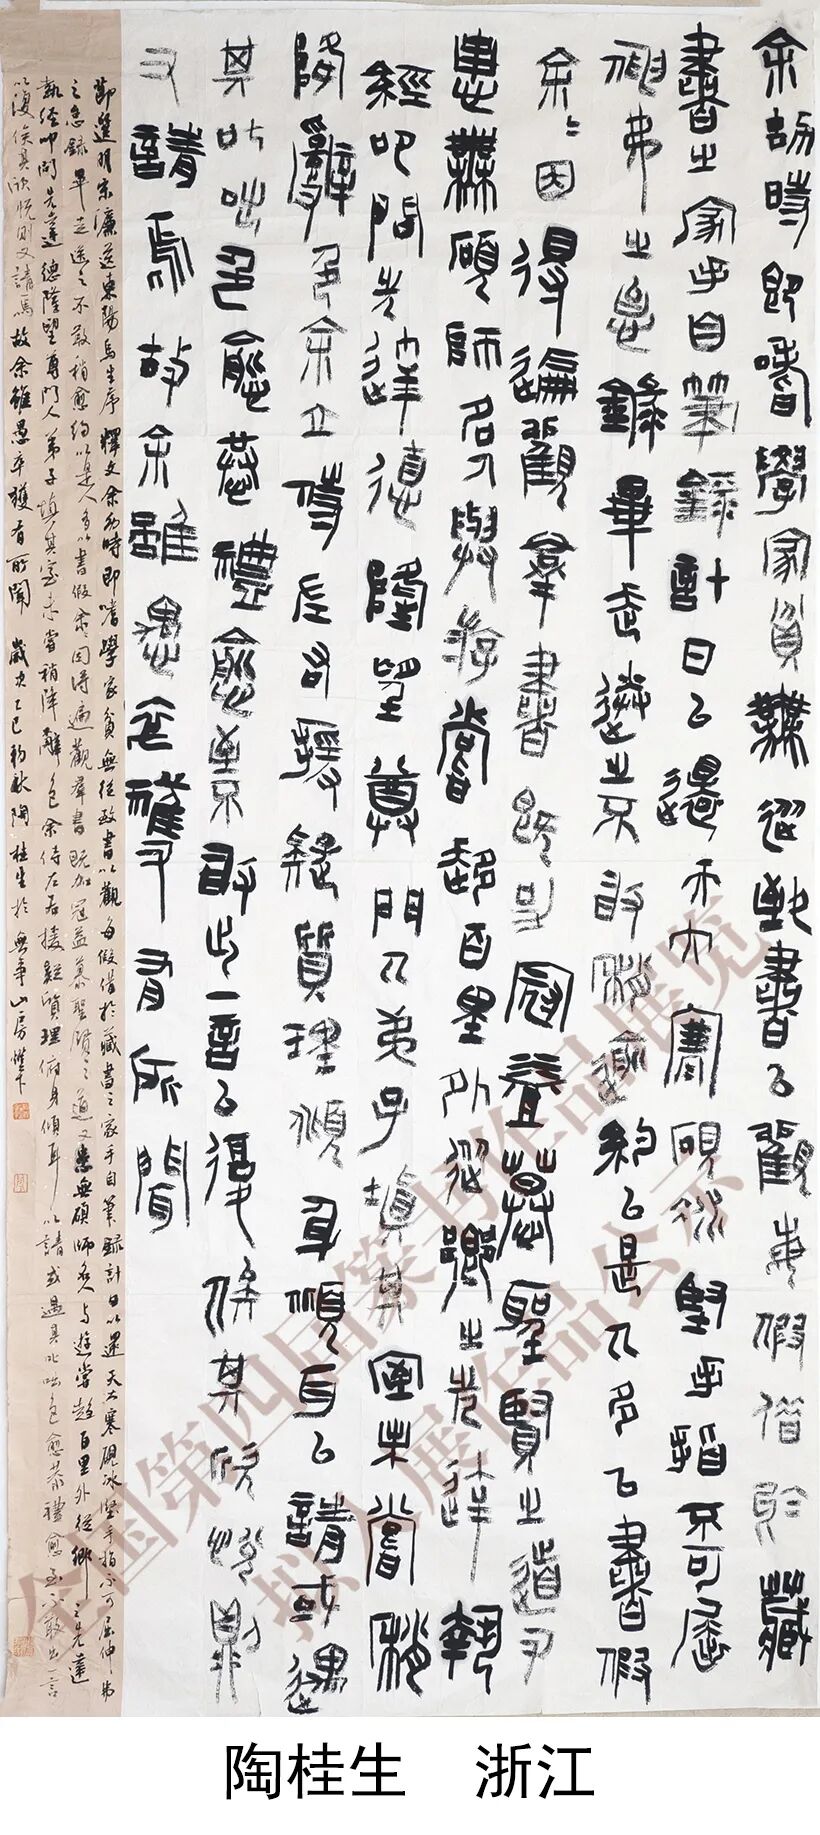 余幼時即嗜學家貧無從致書以觀每假借於藏
書之家手自筆錄計日以還天大寒硯冰堅手指不可屈
伸弗之怠錄畢走送之不敢稍逾約以是人多以書假
余〻因得遍觀群書既加冠益慕聖賢之道又
患無碩師名人與游嘗趨百里外從鄉之先達執
經叩問先達德隆望尊門人弟子填其室未嘗稍
降辭色余立侍左右援疑質理俯身傾耳以請或遇
其叱咄色愈恭禮愈至不敢出一言以復俟其欣悅則
又請焉故余雖愚卒獲有所聞
節選明宋濂送東陽馬生序 釋文余幼時即嗜學家貧無從致書以觀每假借於藏書之家手自筆錄計日以還天大寒硯冰堅手指不可屈伸弗
之怠錄畢走送之不敢稍愈約以是人多以書假余〻因得遍觀羣書既加冠益慕聖賢之道又患無碩師名人与遊嘗趨百里外從鄉之先達
執經叩問先達德隆望尊門人弟子填其室未嘗稍降辭色余侍左右援疑質理俯身傾耳以請或遇其叱咄色愈恭禮愈至不敢出一言
以復俟其欣悅則又請焉故余雖愚卒獲有所聞 歲次乙巳初秋陶桂生於無爭山房燈下
全国第四届篆书作品展览
拟入展作品公示
陶桂生 浙江